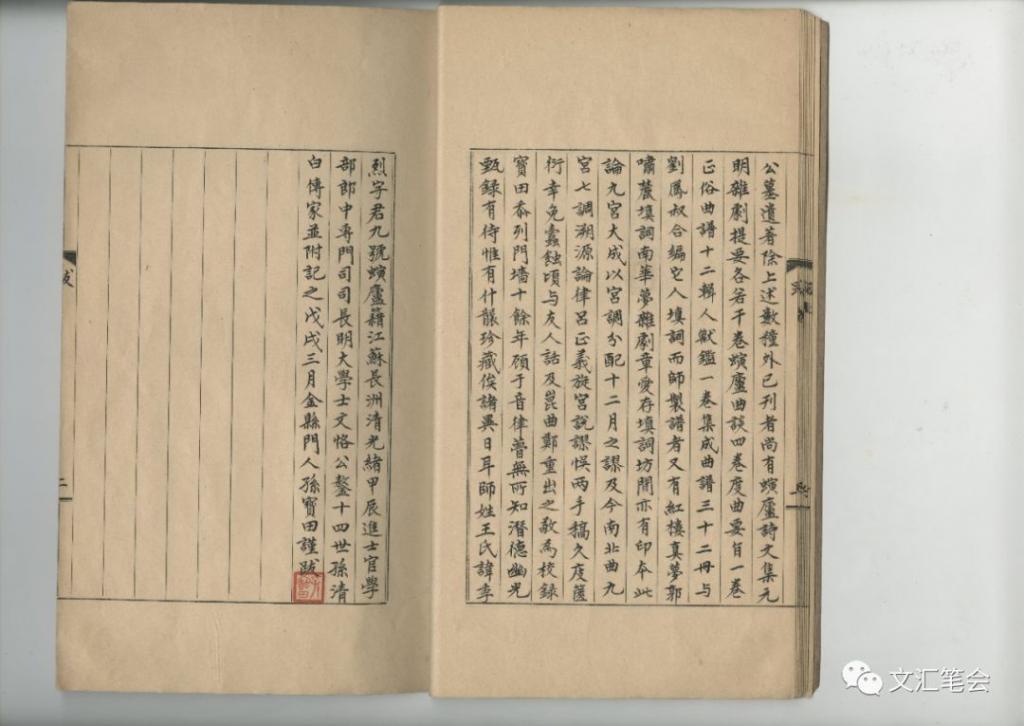 公墓遺著除上述數種外已刊者尚有螾廬詩文集元
明雜劇提要各若干卷螾廬曲談四卷度曲要旨一卷
正俗曲譜十二輯人獸鑑一卷集成曲譜三十二冊與
劉鳳叔合編它人填詞而師製譜者又有紅樓真夢郭
嘯麓填詞南華夢雜劇章愛存填詞坊間亦有印本此
論九宮大成以宮調分配十二月之謬及今南北曲九
宮七調溯源論律呂正義旋宮說謬悞兩手稿久庋篋
衍幸免蠹蝕頃与友人話及崑曲鄭重出之敬為校錄
寶田忝列門墻十餘年顧于音律曹無所知潛德幽光
甄錄有待惟有什襲珍藏俟諸異日耳師姓王氏諱季
烈字君九號螾廬籍江蘇長洲清光緒甲辰進士官學
部郎中專門司司長明大學士文恪公鏊十四世孫清
白傳家並附記之戊戌三月金縣門人孫寶田謹跋
跋
二
文汇笔会